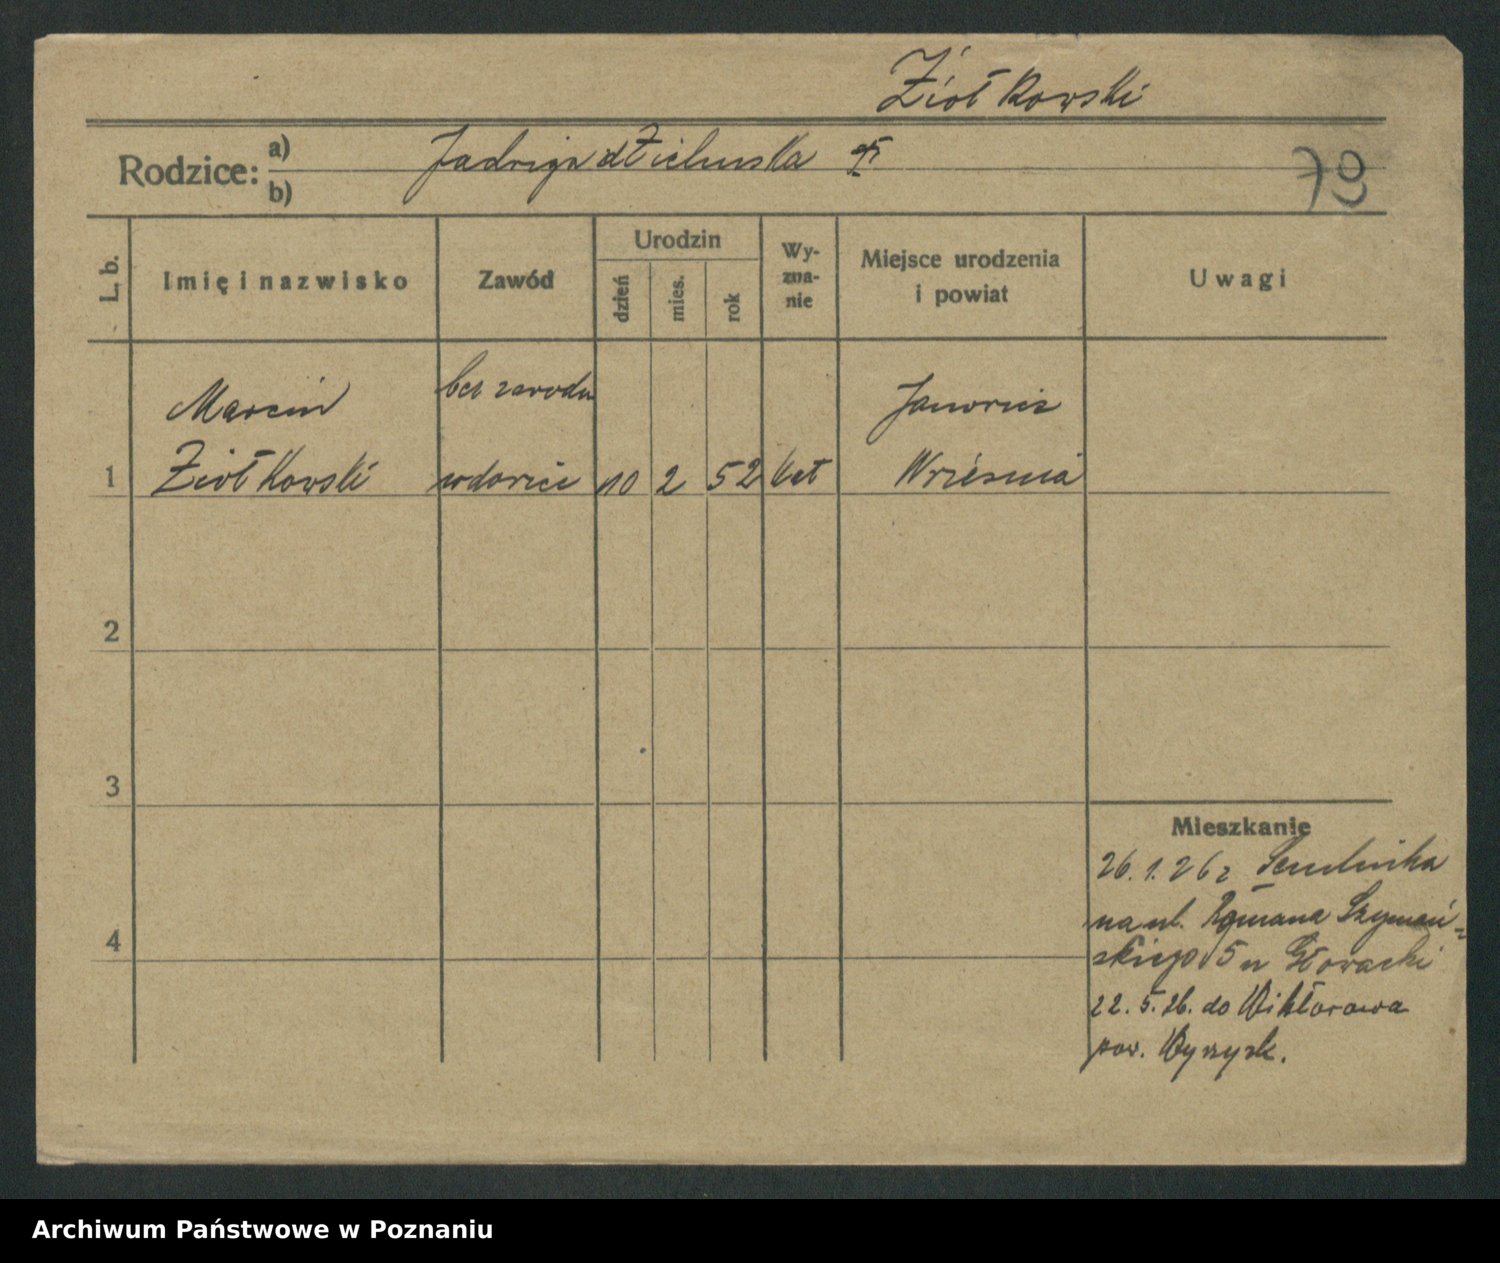 Ziółkowski
Rodzice: a) Jadwiga
b)
79
L. b. Imię i nazwisko Zawód Urodzin dzień mies. rok Wy-zna-nie Miejsce urodzenia i powiat Uwagi
Marcin bez zawodu
1 Ziółkowski wdowiec 10 2 52 kat Września
2
3
Mieszkanie
26. 1. 26 z
na ul. Romana Szymań-
4 skiego 5 u Głowacki
22. 5. 26. do Wiktorowa
pow. Wyrzysk.
Archiwum Państwowe w Poznaniu